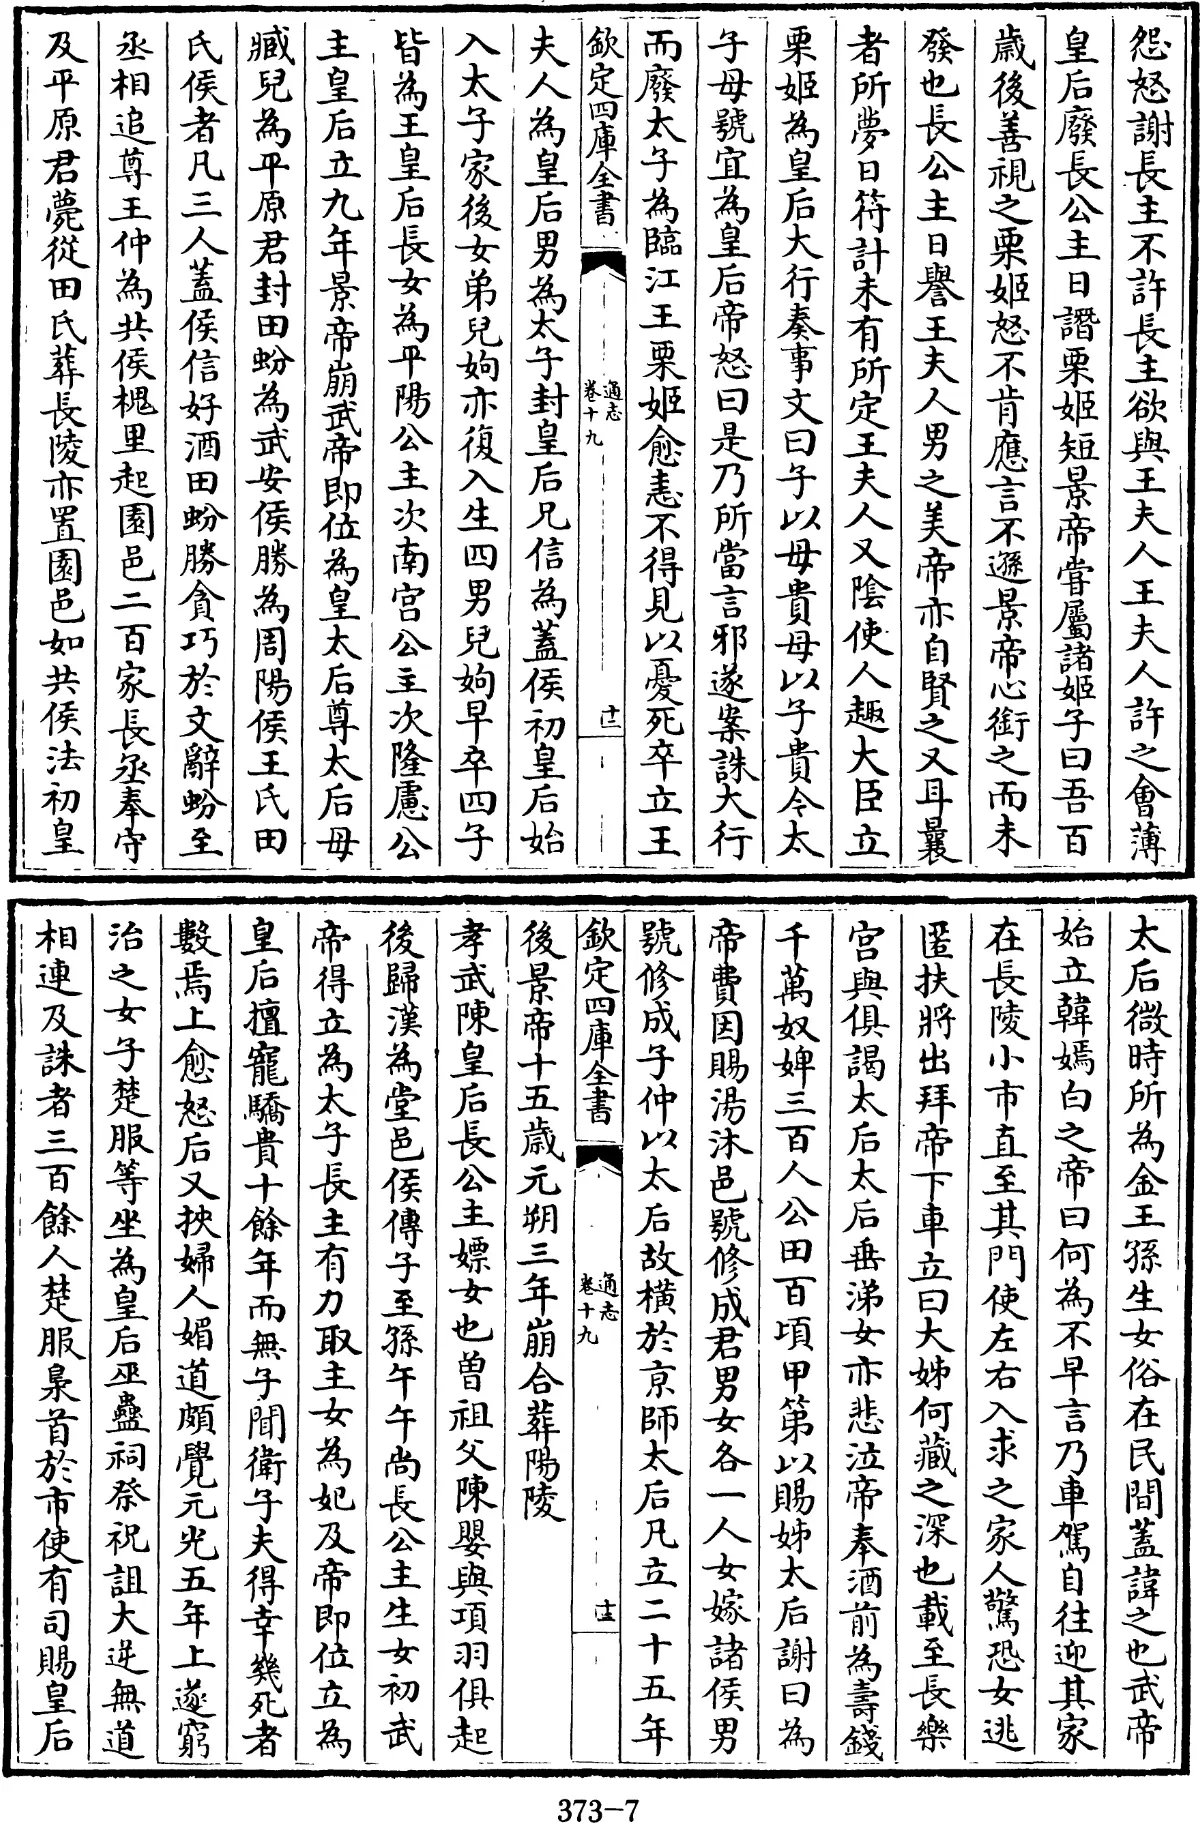 怨怒謝長主不許長主欲與王夫人王夫人許之會薄
皇后廢長公主日譖栗姬短景帝嘗屬諸姬子曰吾百
歲後善視之栗姬怒不肯應言不遜景帝心銜之而未
發也長公主日譽王夫人男之美帝亦自賢之又耳曩
者所夢日符計未有所定王夫人又陰使人趣大臣立
栗姬為皇后大行奏事文曰子以母貴母以子貴今太
子母號宜為皇后帝怒曰是乃所當言邪遂案誅大行
而廢太子為臨江王栗姬愈恚不得見以憂死卒立王
欽定四庫全書
通志
卷十九
十二
夫人為皇后男為太子封皇后兄信為蓋侯初皇后始
入太子家後女弟兒姁亦復入生四男兒姁早卒四子
皆為王皇后長女為平陽公主次南宮公主次隆慮公
主皇后立九年景帝崩武帝即位為皇太后尊太后母
臧兒為平原君封田蚡為武安侯勝為周陽侯王氏田
氏侯者凡三人蓋侯信好酒田蚡勝貪巧於文辭蚡至
丞相追尊王仲為共侯槐里起園邑二百家長丞奉守
及平原君薨從田氏葬長陵亦置園邑如共侯法初皇
太后微時所為金王孫生女俗在民間蓋諱之也武帝
始立韓嫣白之帝曰何為不早言乃車駕自往迎其家
在長陵小市直至其門使左右入求之家人驚恐女逃
匿扶將出拜帝下車立曰大姊何藏之深也載至長樂
宮與俱謁太后太后垂涕女亦悲泣帝奉酒前為壽錢
千萬奴婢三百人公田百頃甲第以賜姊太后謝曰為
帝費因賜湯沐邑號修成君男女各一人女嫁諸侯男
號修成子仲以太后故橫於京師太后凡立二十五年
欽定四庫全書
通志
卷十九
十三
後景帝十五歲元朔三年崩合葬陽陵
孝武陳皇后長公主嫖女也曾祖父陳嬰與項羽俱起
後歸漢為堂邑侯傳子至孫午午尚長公主生女初武
帝得立為太子長主有力取主女為妃及帝即位立為
皇后擅寵驕貴十餘年而無子聞衛子夫得幸幾死者
數焉上愈怒后又挾婦人媚道頗覺元光五年上遂窮
治之女子楚服等坐為皇后巫蠱祠祭祝詛大逆無道
相連及誅者三百餘人楚服梟首於市使有司賜皇后
373-7